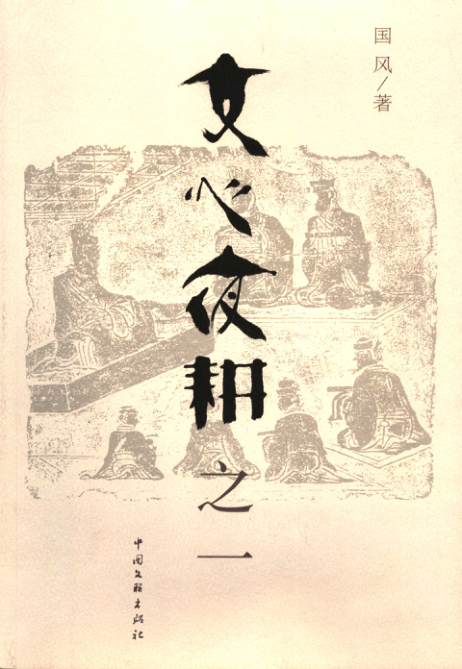 国风/著
文心夜耕之一
中国文联出版社